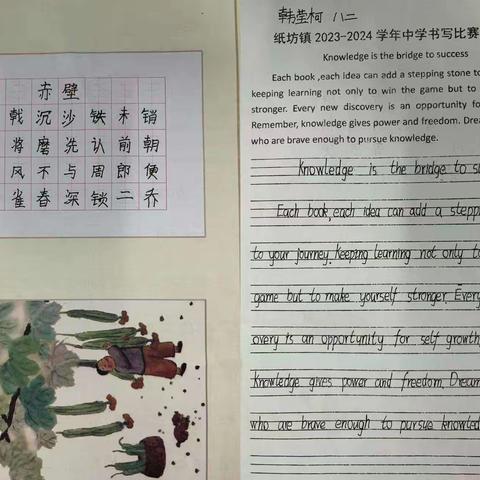 赤壁
戟沉沙铁未销
将磨洗认前朝
风不与周郎便
雀春深锁二乔
韩莹柯 八二
纸坊镇 2023-2024 学年中学书写比赛
Knowledge is the bridge to success
Each book ,each idea can add a stepping stone to
keeping learning not only to win the game but to
stronger. Every new discovery is an opportunity fo
Remember, knowledge gives power and freedom. Drea
who are brave enough to pursue knowledge.
Knowledge is the bridge to su
Each book,each idea can add a stepp
to your journey.Keeping learning not only to
game but to make yourself stronger.Every
overy is an opportunity for self growth
Knowledge gives power and freedom.Dream
who are brave enough to pursue knowled